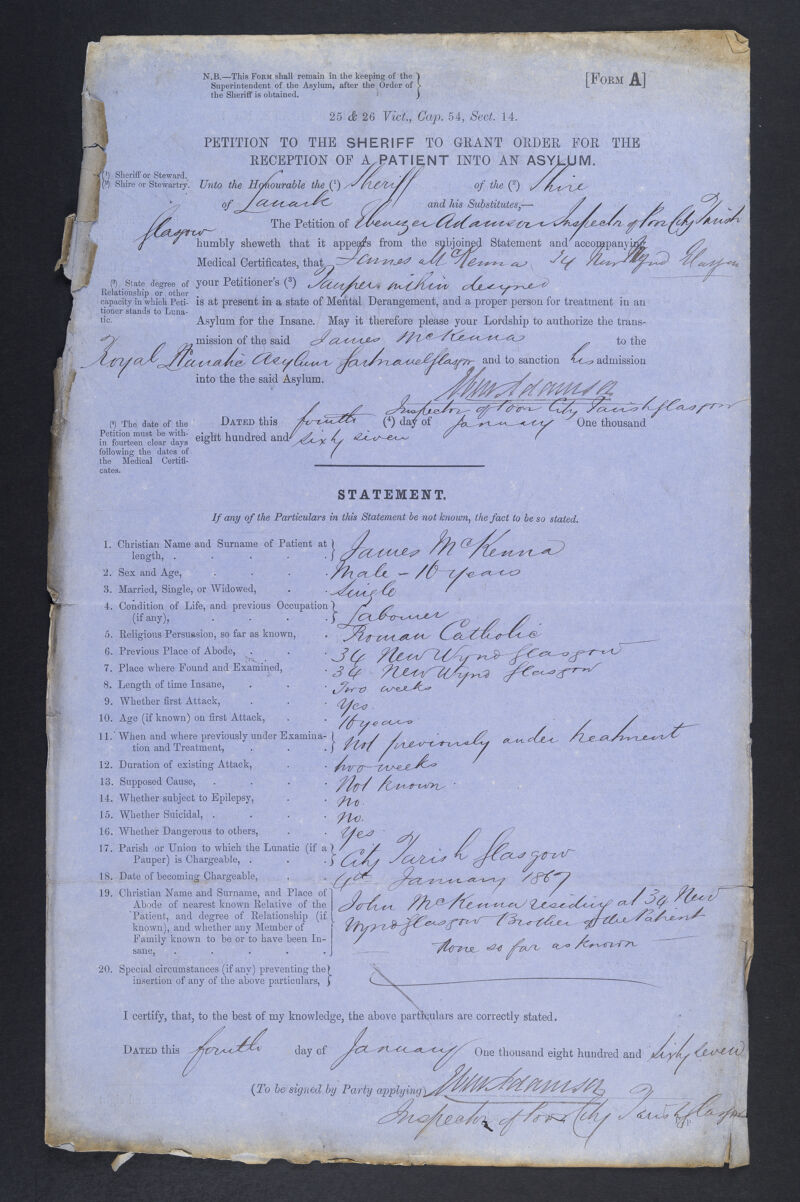 N.B.—This Form shall remain in the keeping of the
Superintendent of the Asylum, after the Order of
the Sheriff is obtained.
[Form A]
25 & 26 Vict., Cap. 54, Sect. 14.
PETITION TO THE SHERIFF TO GRANT ORDER FOR THE
RECEPTION OF A PATIENT INTO AN ASYLUM.
(¹) Sheriff or Steward.
(²) Shire or Stewartry.
Unto the Honourable the (¹) Sheriff of the (²) Shire
of Lanark and his Substitutes,—
The Petition of Ebenezer Adamson Inspector of Poor City Parish
Glasgow
humbly sheweth that it appears from the subjoined Statement and accompanying
Medical Certificates, that James McKenna 34 New Wynd Glasgow
(³) State degree of
Relationship or other
capacity in which Peti-
tioner stands to Luna-
tic.
your Petitioner's (³) Pauper within designed
is at present in a state of Mental Derangement, and a proper person for treatment in an
Asylum for the Insane. May it therefore please your Lordship to authorize the trans-
mission of the said James McKenna to the
Royal Lunatic Asylum Gartnavel Glasgow and to sanction his admission
into the the said Asylum.
Ebenr Adamson
Inspector of Poor City Parish Glasgow
(⁴) The date of the
Petition must be with-
in fourteen clear days
following the dates of
the Medical Certifi-
cates.
Dated this fourth (⁴) day of January One thousand
eight hundred and sixty seven
STATEMENT.
If any of the Particulars in this Statement be not known, the fact to be so stated.
1. Christian Name and Surname of Patient at
length, . . . . . James McKenna
2. Sex and Age, . . . . Male – 16 years
3. Married, Single, or Widowed, . . Single
4. Condition of Life, and previous Occupation
(if any), . . . . Labourer
5. Religious Persuasion, so far as known, . Roman Catholic
6. Previous Place of Abode, . . . 34 New Wynd Glasgow
7. Place where Found and Examined, . 34 New Wynd Glasgow
8. Length of time Insane, . . . Two weeks
9. Whether first Attack, . . . Yes
10. Age (if known) on first Attack, . . 16 years
11. When and where previously under Examina-
tion and Treatment, . . . Not previously under treatment
12. Duration of existing Attack, . . two weeks
13. Supposed Cause, . . . . Not known
14. Whether subject to Epilepsy, . . No
15. Whether Suicidal, . . . . No.
16. Whether Dangerous to others, . . Yes
17. Parish or Union to which the Lunatic (if a
Pauper) is Chargeable, . . . City Parish Glasgow
18. Date of becoming Chargeable, . . 4th January 1867
19. Christian Name and Surname, and Place of
Abode of nearest known Relative of the
Patient, and degree of Relationship (if
known), and whether any Member of
Family known to be or to have been In-
sane, . . . . .
John McKenna residing at 34 New
Wynd Glasgow Brother of the Patient
— None so far as known —
20. Special circumstances (if any) preventing the
insertion of any of the above particulars,
I certify, that, to the best of my knowledge, the above particulars are correctly stated.
Dated this fourth day of January One thousand eight hundred and sixty seven
(To be signed by Party applying) Ebenr Adamson
Inspector of Poor City Parish Glasgow